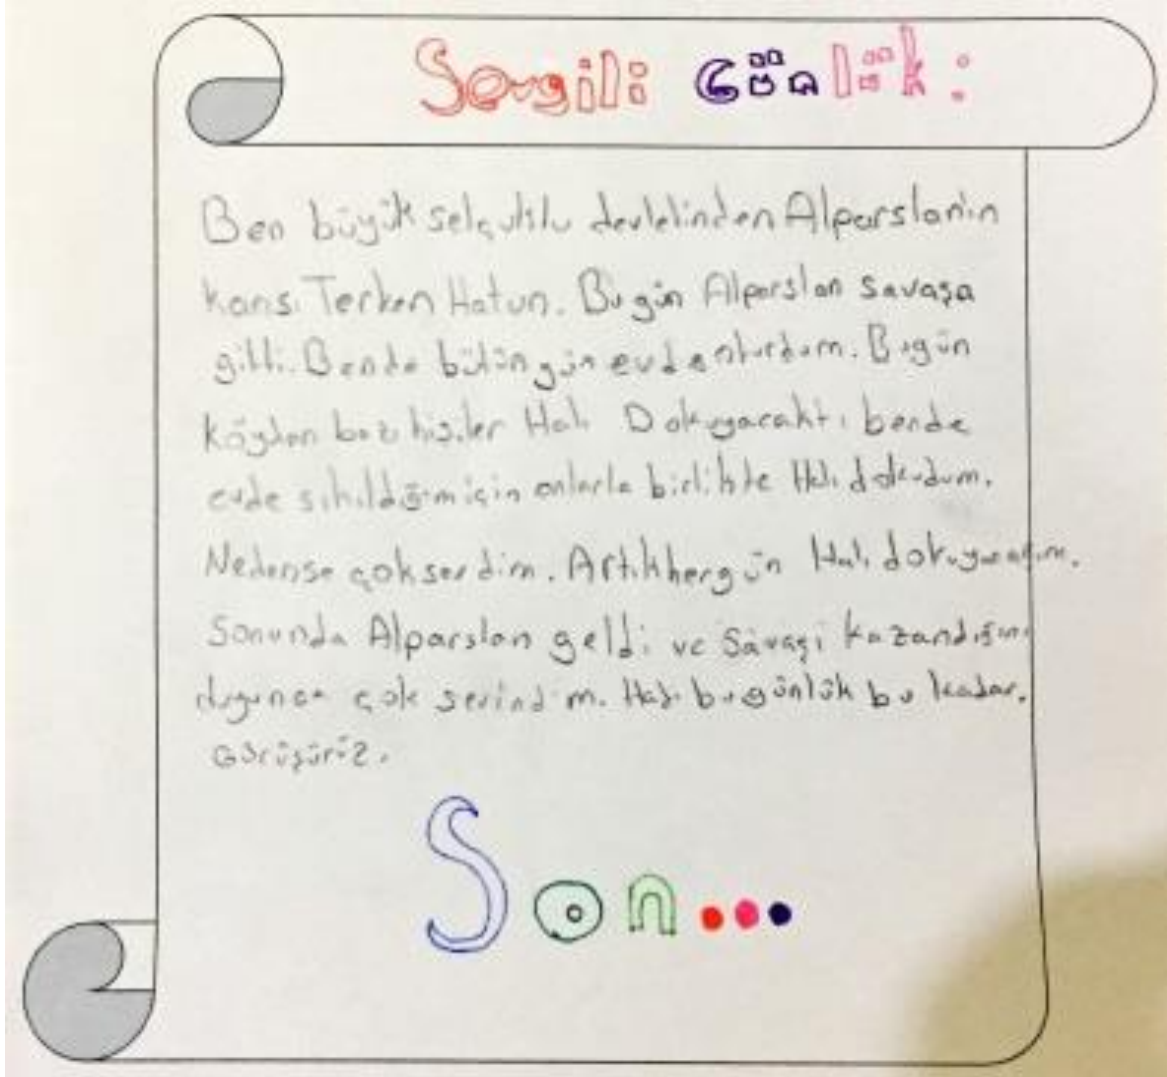 Sevgili Günlük:
Ben büyük selçuklu devletinden Alparslan'ın
karısı Terken Hatun. Bugün Alparslan savaşa
gitti. Bende bütün gün evde oturdum. Bugün
köyden bazı kişiler Halı Dokuyacaktı bende
evde sıkıldığım için onlarla birlikte Halı dokudum.
Nedense çok sevdim. Artık hergün Halı dokuyacağım.
Sonunda Alparslan geldi ve Savaşı kazandığını
duyunca çok sevindim. Hadi bugünlük bu kadar.
Görüşürüz.
Son...